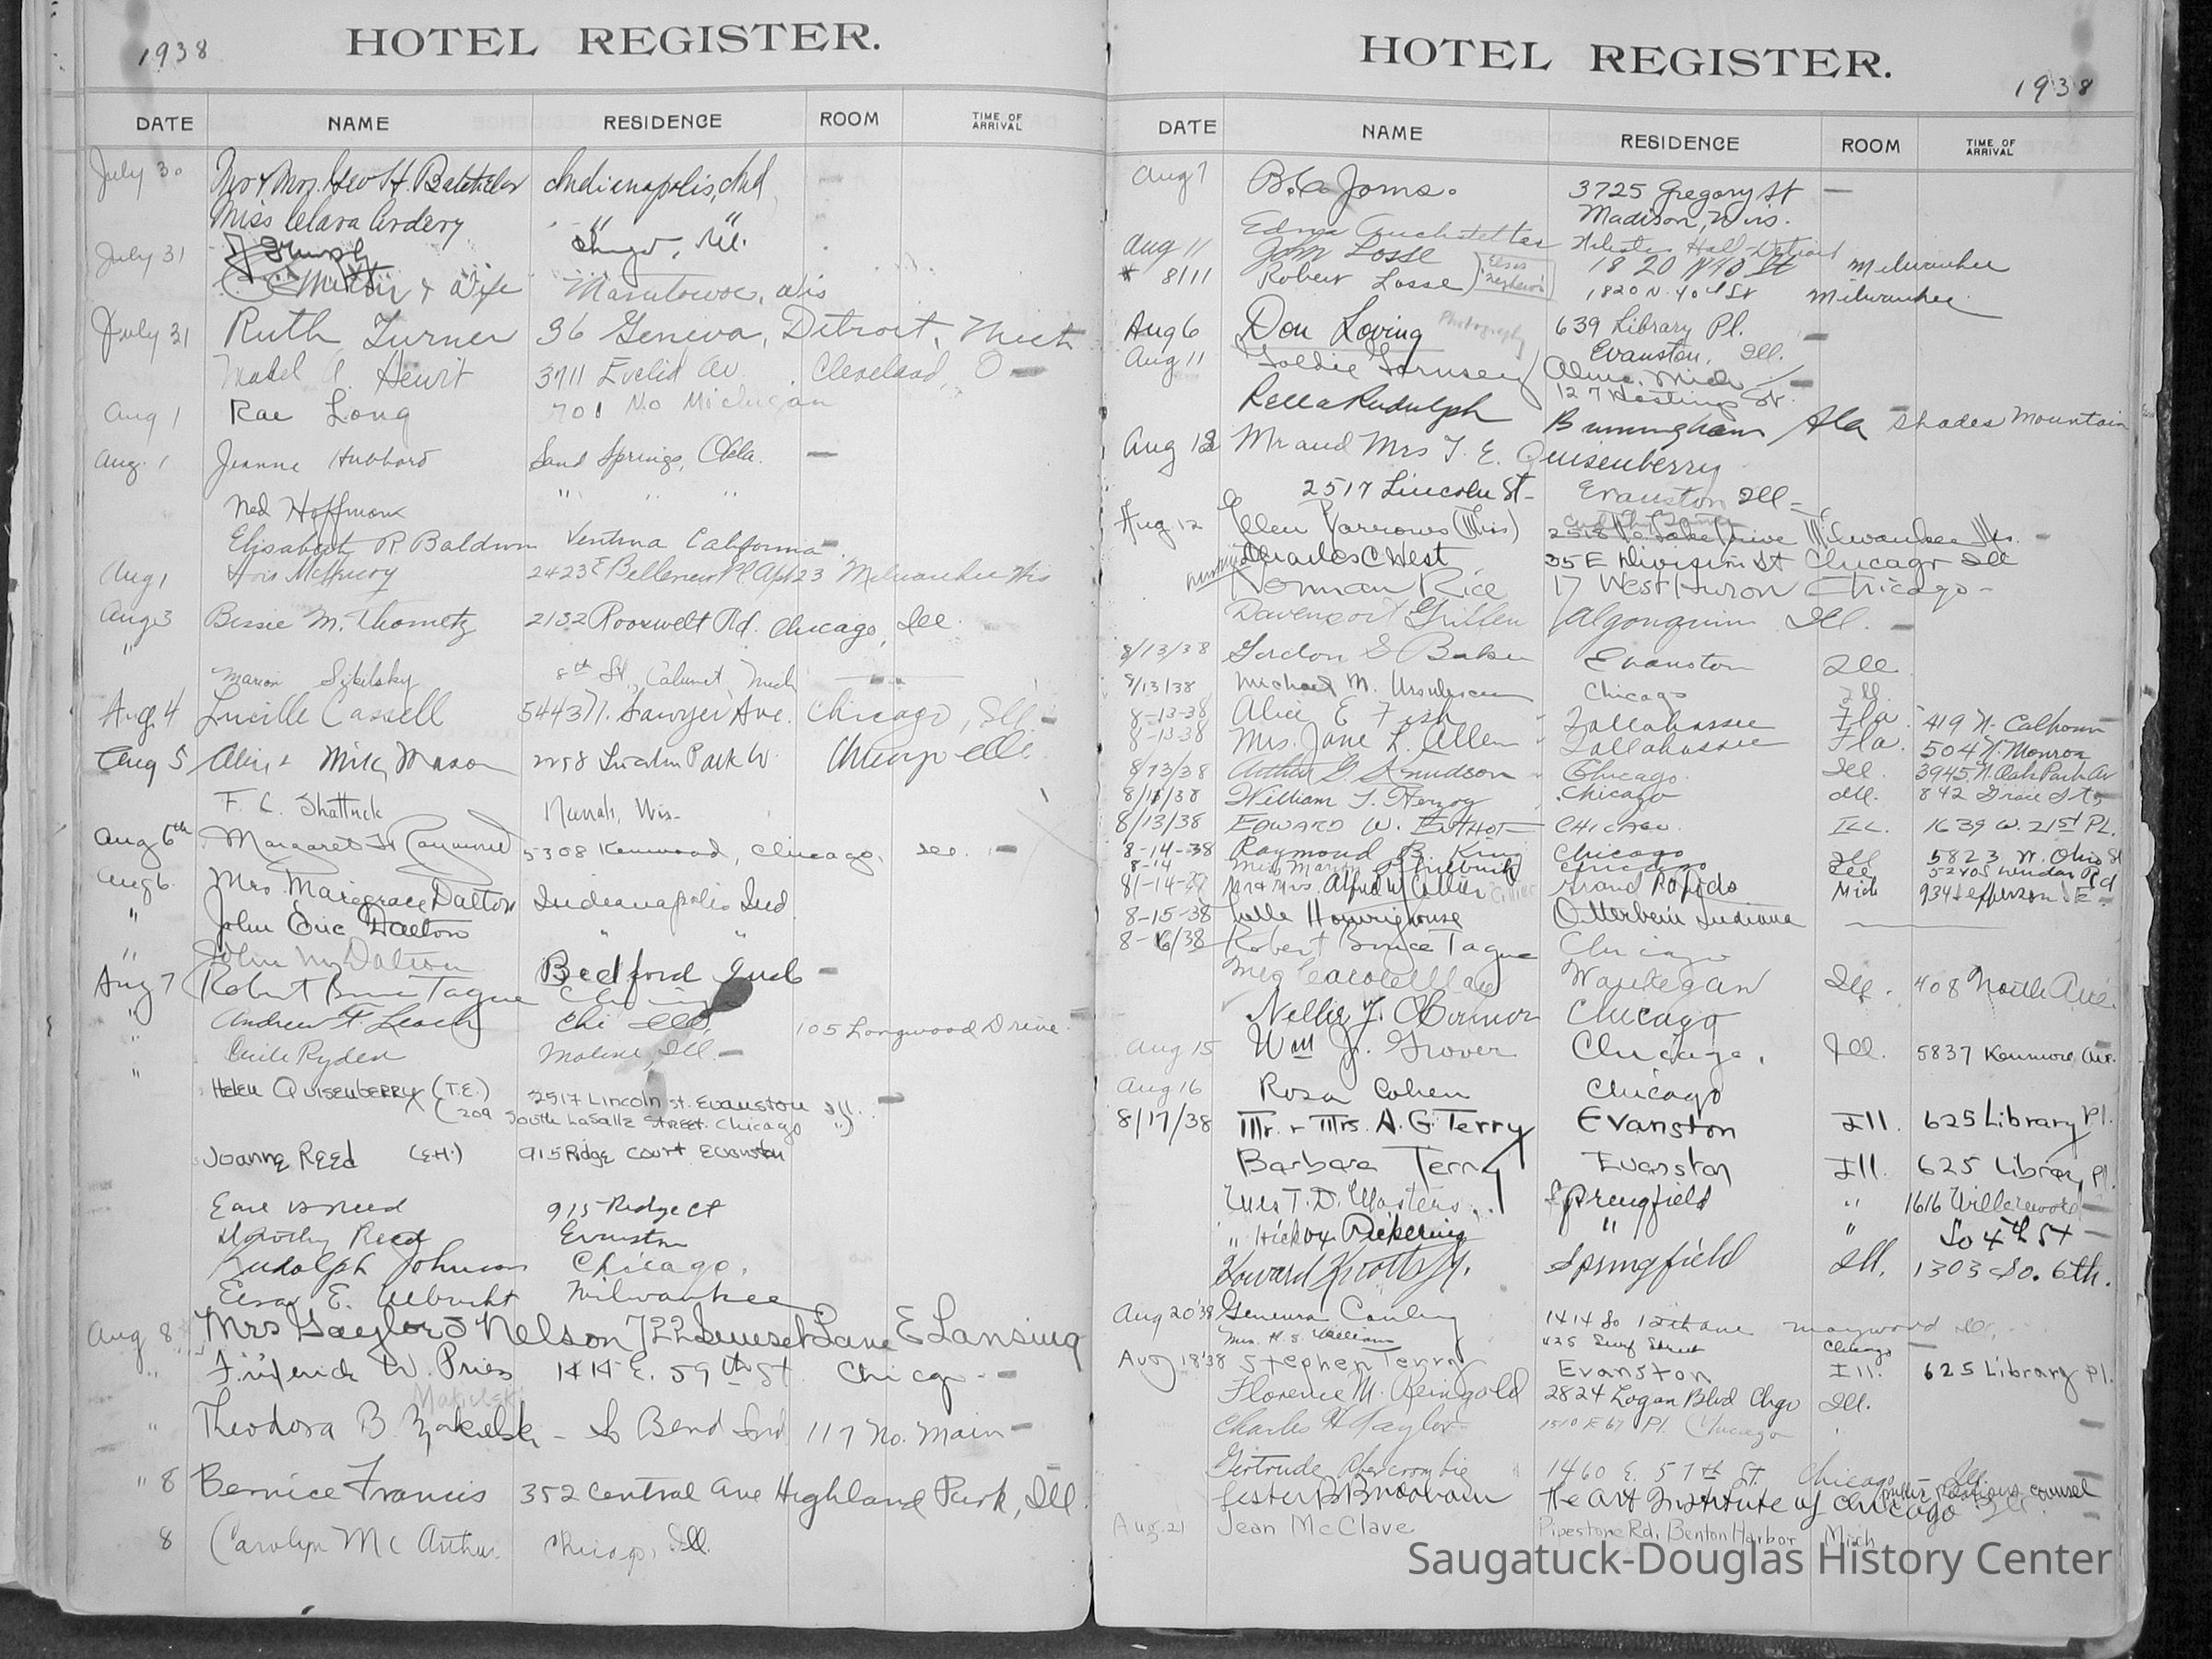 1938
HOTEL REGISTER.
DATE NAME RESIDENCE ROOM TIME OF ARRIVAL
July 30 Mr & Mrs. Geo H. Indianapolis, Ind
Miss Clara Ardery " "
July 31
& Wife Manitowoc, Wis
July 31 Ruth Turner 36 Geneva, Detroit, Mich
Mabel A. Hewit 3711 Euclid Av. Cleveland, O —
Aug 1 Rae Long 701 No Michigan
Aug. 1 Jeanne Hubbard Sand Springs, Okla. —
Ned Hoffman " " "
Elisabeth R Baldwin Ventura California —
Aug 1 Lois 2423 E Bellevue Pl Apt 23 Milwaukee Wis
Aug 3 Bessie M. Thometz 2132 Roosevelt Rd. Chicago, Ill.
" Marion Sikilsky 8th St., Calumet, Mich
Aug. 4 Lucille Cassell 5443 N. Sawyer Ave. Chicago, Ill. —
Aug 5 Mason Lincoln Park W. Chicago Ill.
F. C. Shattuck Wis.
Aug 6th Margaret Raymond 5308 Kenwood, Chicago, Ill. —
Aug 6. Mrs Dalton Indianapolis Ind
" John Eric Dalton " "
" John M Dalton Bedford Ind —
Aug 7 Robert Bruce Tague Chicago
" Andrew F. Leach Chi Ill. 105 Longwood Drive
" Cecile Ryden Moline, Ill. —
" Helen Quisenberry (T.E.) 2517 Lincoln St. Evanston Ill. —
(209 South LaSalle Street. Chicago ")
Joanne Reed (E.H.) 915 Ridge Court Evanston
Earl Reed 915 Ridge Ct
Dorothy Reed Evanston
Rudolph Johnson Chicago.
Elsa E. Ulbricht Milwaukee
Aug 8 Mrs Gaylord Nelson 722 Sunset Lane E Lansing
" W. Pries 1414 E. 59th St Chicago —
" Theodora B. So Bend Ind 117 No. Main —
" 8 Bernice Francis 352 Central Ave Highland Park, Ill.
8 Carolyn McArthur Chicago, Ill.
HOTEL REGISTER.
1938
DATE NAME RESIDENCE ROOM TIME OF ARRIVAL
Aug 7 3725 Gregory St —
Madison, Wis.
Edna
Aug 11 John Losse 1820 N 40 St Milwaukee
* 8/11 Robert Losse 1820 N. 40 St Milwaukee
Aug 6 Don Loving Photography 639 Library Pl. —
Evanston, Ill.
Aug 11 Goldie Alma, Mich —
127 Hastings St.
Rella Rudulph Birmingham Ala Shades Mountain
Aug 12 Mr and Mrs T. E. Quisenberry
2517 Lincoln St- Evanston Ill —
Aug 12 Ellen Barrows (Miss) Lake Drive Milwaukee Wis. —
Charles C West 35 E Division St Chicago Ill
Norman Rice 17 West Huron Chicago —
Davenport Griffen Algonquin Ill. —
8/13/38 Gordon S Baker Evanston Ill
8/13/38 Michael M. Ursulescu Chicago Ill.
8-13-38 Alice E Fish Tallahassee Fla. 419 N. Calhoun
8-13-38 Mrs. Jane L. Allen Tallahassee Fla. 504 N. Monroe
8/13/38 Arthur G. Knudson Chicago. Ill. 3945 N. Oak Park Av
8/13/38 William T. Herzog Chicago Ill. 842 Grace St
8/13/38 EDWARD W. CHICAGO ILL. 1639 W. 21st PL.
8-14-38 Raymond B. King Chicago Ill 5823 W. Ohio St
8-14 Miss Marion Chicago Ill
8-14- Mr & Mrs. Alfred Grand Rapids Mich 934 Jefferson S E
8-15-38 Julle Otterbein Indiana
8-16/38 Robert Bruce Tague Chicago
Meg Waukegan Ill. 408 North Ave.
Nellie Y. O'Connor Chicago
Aug 15 Wm Jr. Grover Chicago, Ill. 5837 Kenmore Ave.
Aug 16 Rosa Cohen Chicago
8/17/38 Mr. & Mrs. A. G. Terry Evanston Ill. 625 Library Pl.
Barbara Terry Evanston Ill. 625 Library Pl.
Mrs T. D. Masters Springfield " 1616
" Hickox Pickering " " So 4th St —
Howard Knotts Jr. Springfield Ill. 1303 So. 6th.
Aug 20 '38 Genevra 1414 So 12th ave Maywood Ill.
Mrs. H. S. William 425 Surf Street Chicago —
Aug 18 '38 Stephen Terry Evanston Ill. 625 Library Pl.
Florence M. Reingold 2824 Logan Blvd Chgo Ill.
Charles H Taylor 1510 E 67 Pl. Chicago
Gertrude Abercrombie 1460 E. 57th St. Chicago Ill.
Lester B Bridaham The Art Institute of Chicago Public Relations counsel
Aug. 21 Jean McClave Pipestone Rd. Benton Harbor Mich
Saugatuck-Douglas History Center